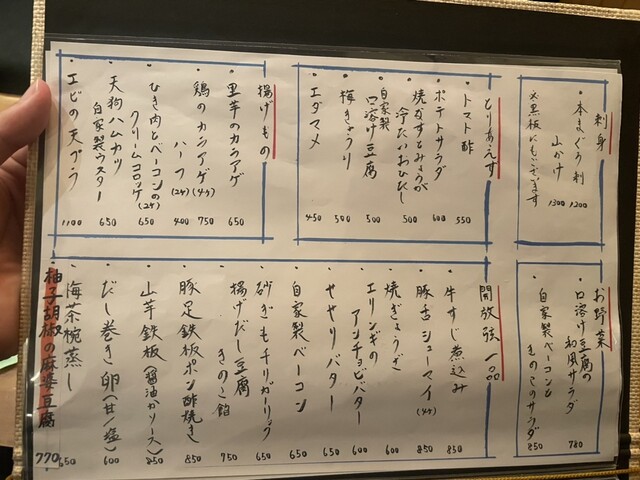 刺身
・本まぐろ刺 1200
山かけ 1300
※黒板にもございます
とりあえず
・トマト酢 550
・ポテトサラダ 600
・焼なすとみょうが
冷たいおひたし 500
・自家製
口溶け豆腐 500
・梅きゅうり 500
・エダマメ 450
揚げもの
・里芋のカラアゲ 650
・鶏のカラアゲ(4ケ) 750
ハーフ(2ケ) 400
・ひき肉とベーコンの
クリームコロッケ(2ケ) 650
・天狗ハムカツ
自家製ウスター 650
・エビの天ぷら 1100
お野菜
・口溶け豆腐の
和風サラダ 780
・自家製ベーコンと
きのこのサラダ 850
開放弦一品
・牛すじ煮込み 850
・豚舌シューマイ(4ケ) 850
・焼きぎょうざ 600
・エリンギの
アンチョビバター 600
・ヤヤリバター
・自家製ベーコン 650
・砂ぎもチリガーリック 650
・揚げだし豆腐
きのこ餡 750
・豚足鉄板ポン酢焼き 850
・山芋鉄板(醤油かソース) 850
・だし巻き卵(甘/塩) 600
・海茶椀蒸し 650
柚子胡椒の麻婆豆腐 770